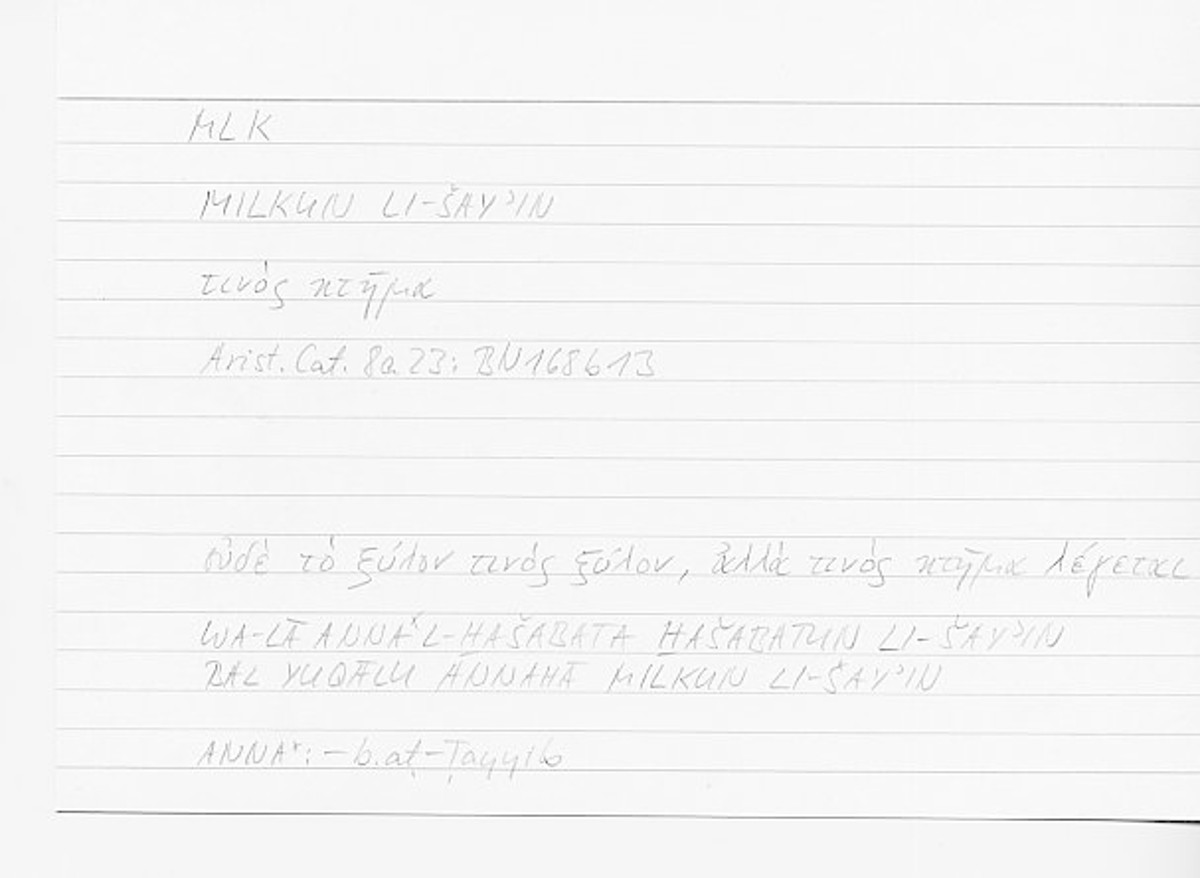 MLK
MILKUN LI-ŠAYʾIN
τινὸς κτῆμα
Arist. Cat. 8a23: BN168b13
οὐδὲ τὸ ξύλον τινὸς ξύλον, ἀλλὰ τινὸς κτῆμα λέγεται
WA-LĀ ANNAˣ L-ḪAŠABATA ḪAŠABATUN LI-ŠAYʾIN
BAL YUQĀLU ANNAHĀ MILKUN LI-ŠAYʾIN
ANNAˣ: – b.aṭ-Ṭayyib